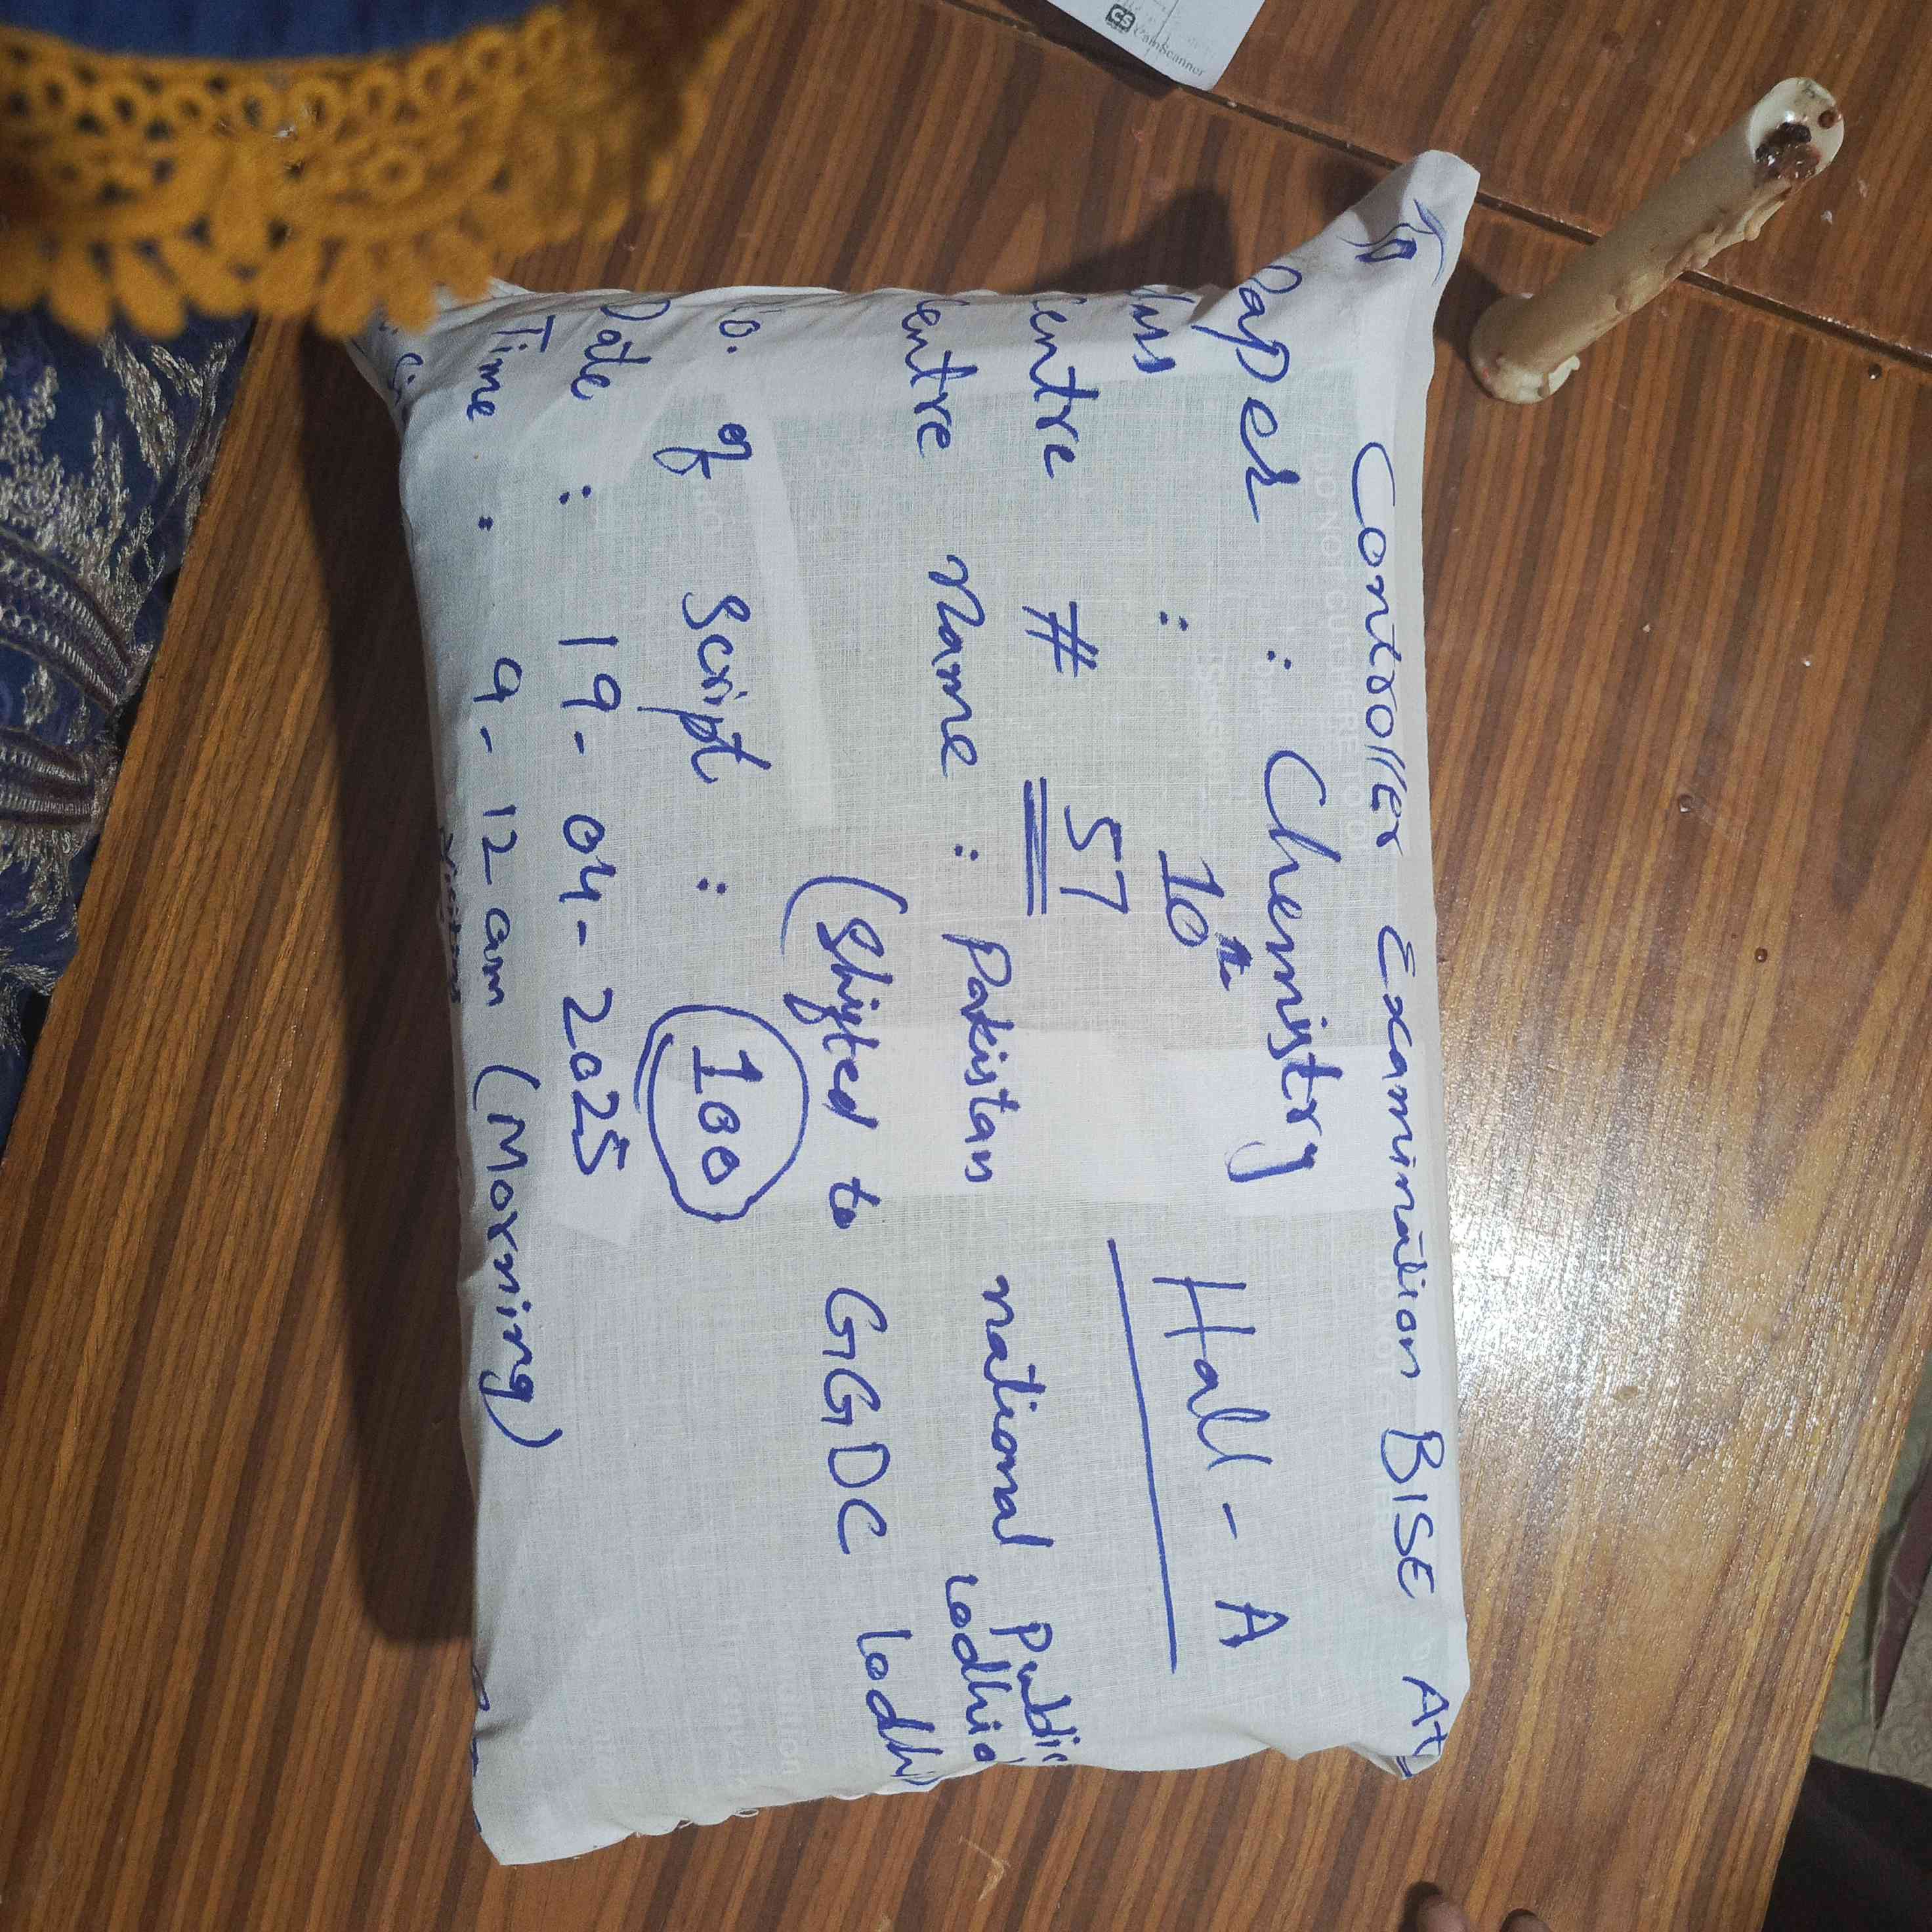 To
Controller Examination BISE At
Paper : Chemistry
lass : 10th
Hall - A
entre # 57
entre Name : Pakistan national Public
Lodhi
(Shifted to GGDC Lodh
o. of Script : 100
Date : 19-04-2025
Time : 9-12 am (Morning)
CS CamScanner